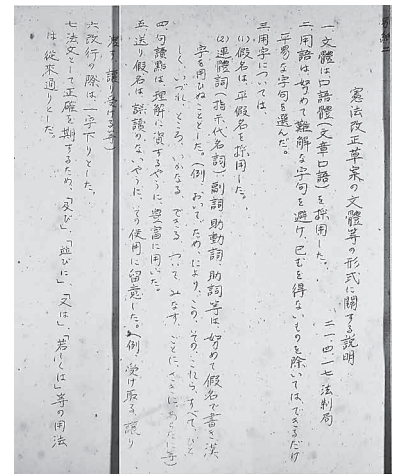 憲法改正草案の文體等の形式に關する説明
二一、四、一七 法制局
一、文體は口語體(文章口語)を採用した。
二、用語は努めて難解な字句を避け、已むを得ないものを除いてはできるだけ
平易な字句を選んだ。
三、用字については、
(1) 假名は平假名を採用した。
(2) 連體詞(指示代名詞)副詞、助動詞、助詞等は努めて假名で書き、漢
字を用ひぬこととした。(例、おいて、ため、により、この、その、これら、すべて、ひと
しく、いづれ、ところ、いかなる、できる、ついて、みなす、ごとに、 等)
四、句讀點は、理解に資するやうに、豐富に用いた。
五、送り假名は、誤讀のないやうに、その使用に留意した。(例 受け取る、讓り
渡す、讓り受ける等)
六、改行の際は、一字下りとした。
七、法文として正確を期するため、「及び」、「並びに」、「又は」、「若しくは」等の用法
は、從來通りとした。